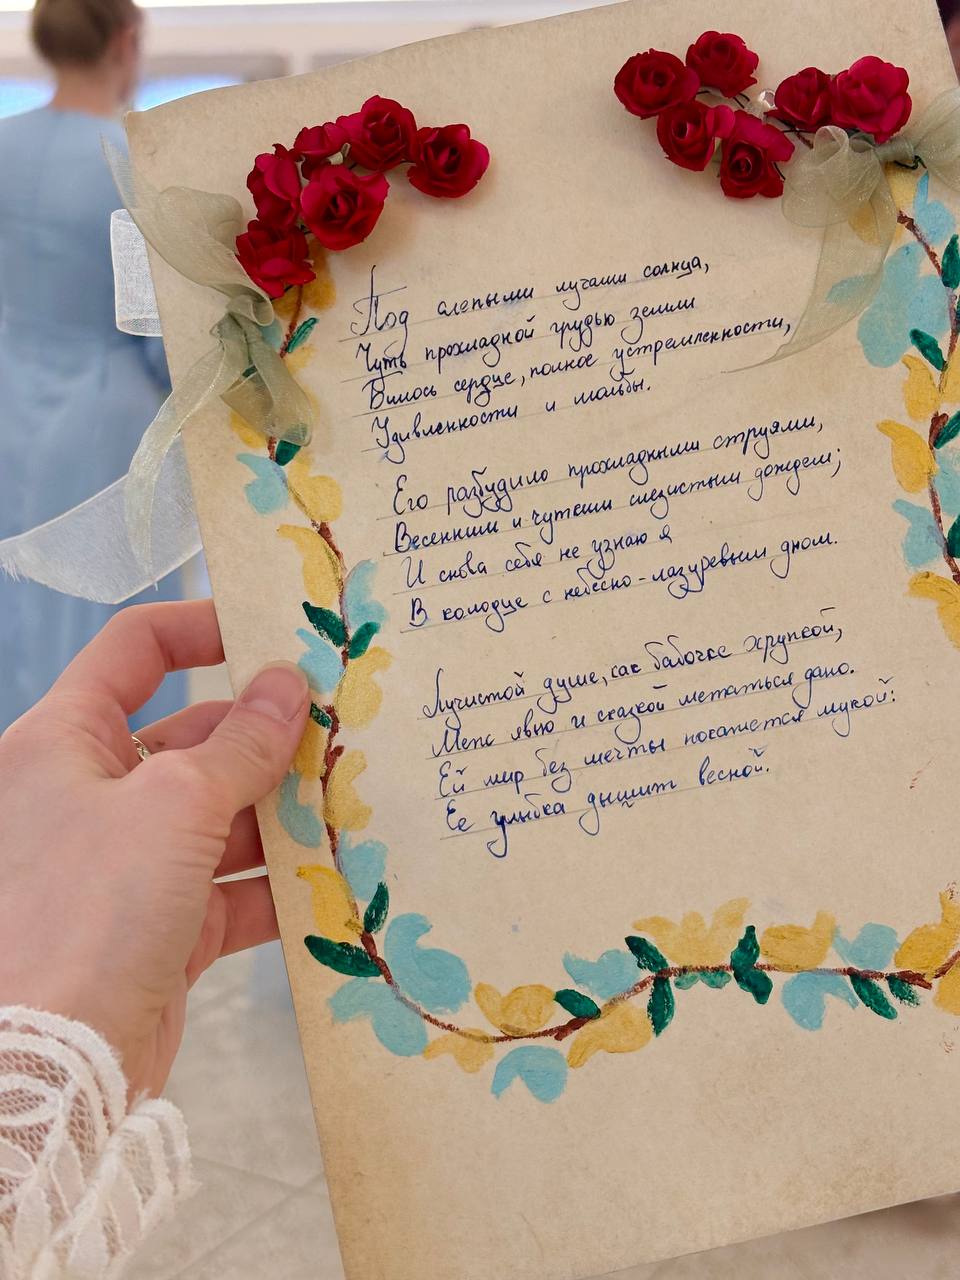 Под слепыми лучами солнца,
Чуть прохладной грудью земли
Билось сердце, полное устремленности,
Удивленности и мольбы.
Его разбудило прохладными струями,
Весенним и чутким слезистым дождем;
И снова себя не узнаю я
В колодце с небесно-лазуревым дном.
Лучистой душе, как бабочке хрупкой,
Меж явью и сказкой метаться дано.
Ей мир без мечты покажется мукой:
Ее улыбка дышит весной.